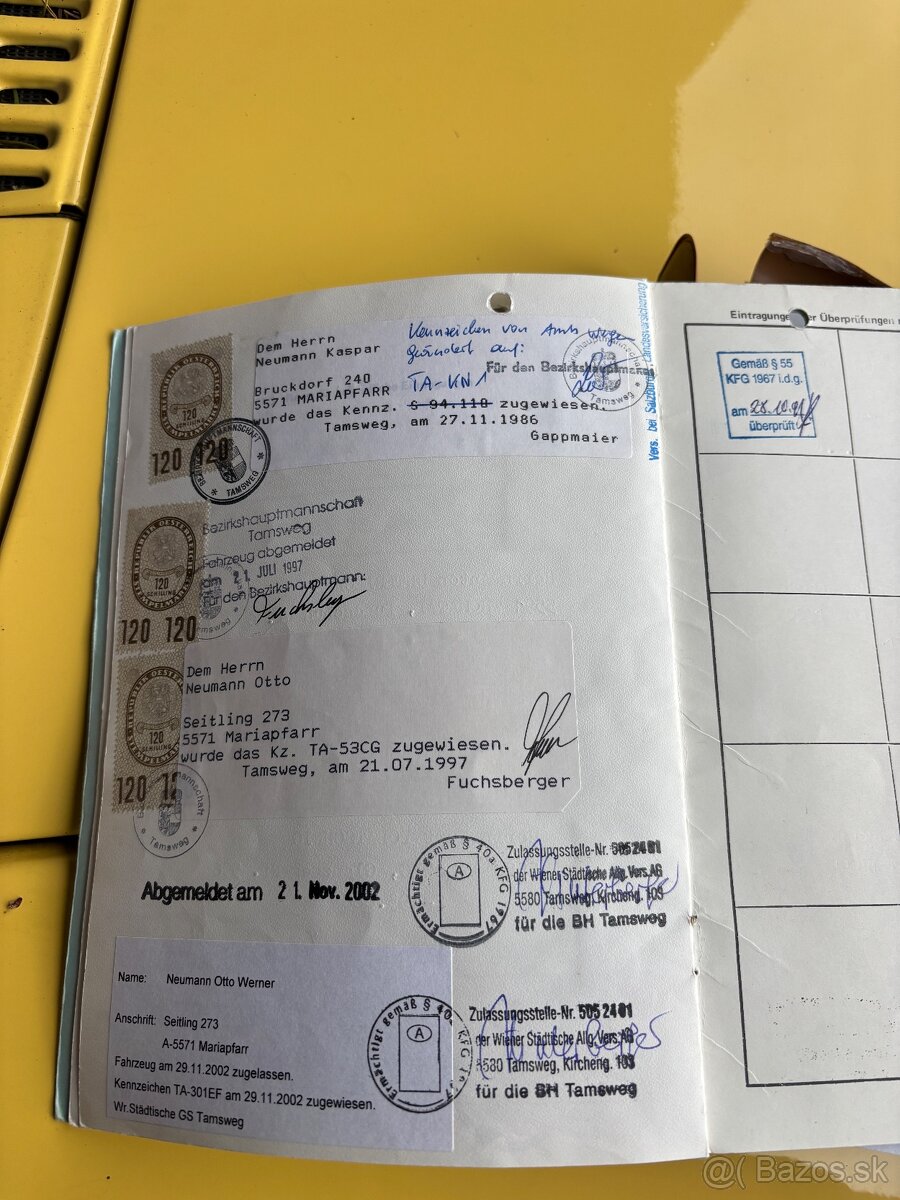 Dem Herrn
Neumann Kaspar
Bruckdorf 240
5571 MARIAPFARR
wurde das Kennz. S 94.118 zugewiesen.
Tamsweg, am 27.11.1986
Gappmaier
Kennzeichen von Amts wegen
geändert auf:
TA-KN 1
Für den Bezirkshauptmann
Tamsweg
120
SCHILLING
120 120
BEZIRKSHAUPTMANNSCHAFT
* TAMSWEG *
Vers. bei Salzburger Landesversicherung
Bezirkshauptmannschaft
Tamsweg
Fahrzeug abgemeldet
am 21. JULI 1997
für den Bezirkshauptmann:
REPUBLIK OESTERREICH
STEMPELMARKE
120
SCHILLING
120 120
Dem Herrn
Neumann Otto
Seitling 273
5571 Mariapfarr
wurde das Kz. TA-53CG zugewiesen.
Tamsweg, am 21.07.1997
Fuchsberger
120
SCHILLING
120 12
Tamsweg
Abgemeldet am 21. Nov. 2002
Ermächtigt gemäß § 40a KFG 1967
A
Zulassungsstelle-Nr. 505 24 01
der Wiener Städtische Allg. Vers. AG
5580 Tamsweg, Kircheng. 103
für die BH Tamsweg
Name: Neumann Otto Werner
Anschrift: Seitling 273
A-5571 Mariapfarr
Fahrzeug am 29.11.2002 zugelassen.
Kennzeichen TA-301EF am 29.11.2002 zugewiesen.
Wr.Städtische GS Tamsweg
Ermächtigt gemäß § 40a KFG 1967
A
Zulassungsstelle-Nr. 505 24 01
der Wiener Städtische Allg. Vers. AG
5580 Tamsweg, Kircheng. 103
für die BH Tamsweg
Eintragungen der Überprüfungen
Gemäß § 55
KFG 1967 i.d.g.
am
überprüft
@( Bazos.sk